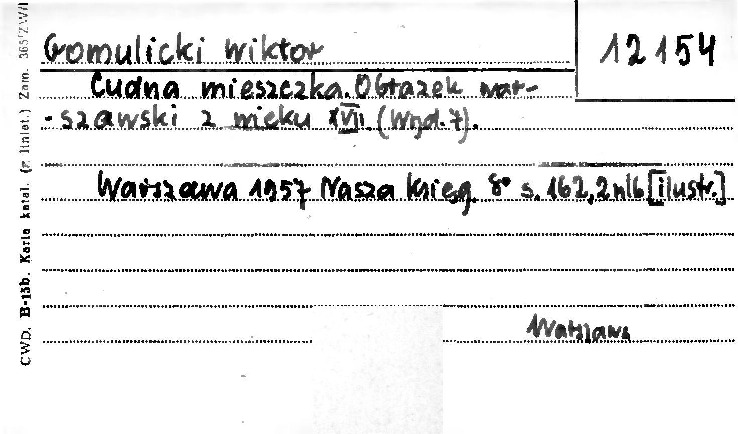 Gomulicki Wiktor
12154
Cudna mieszczka. Obrazek war-
-szawski z wieku XVII. (Wyd. 7).
Warszawa 1957 Nasza Księg. 8° s. 162, 2 nlb [ilustr.]
Warszawa
CWD. B-15b. Karta katal. (z liniat.) Zam. 365/ZW/1